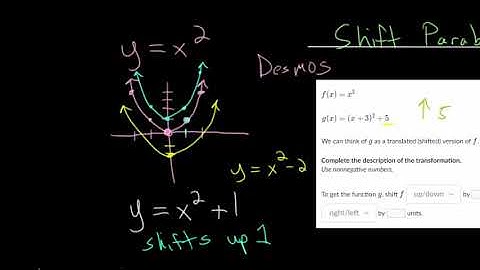 y = x²
Shift Parab
Desmos
f(x) = x²
g(x) = (x + 3)² + 5
↑ 5
We can think of g as a translated (shifted) version of f.
Complete the description of the transformation.
Use nonnegative numbers.
To get the function g, shift f up/down by
right/left by units.
y = x² - 2
y = x² + 1
shifts up 1